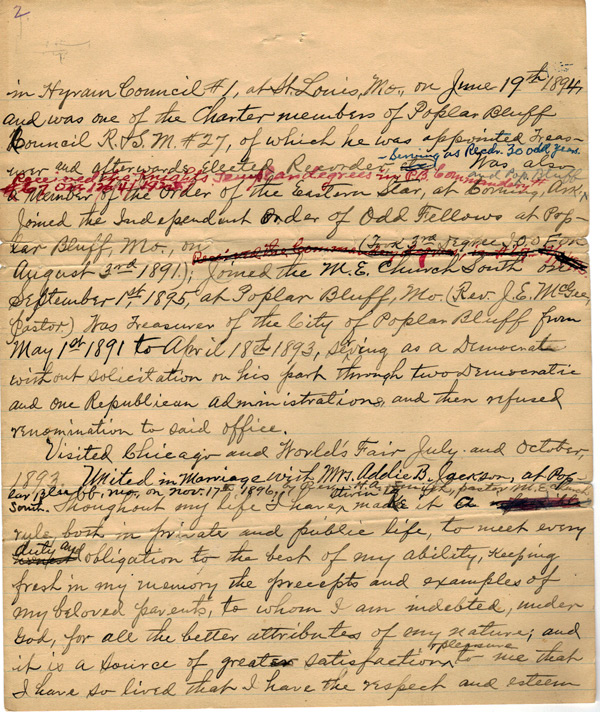 2
in Hyram Council #1, at St. Louis, Mo., on June 19th 1894,
and was one of the Charter members of Poplar Bluff
Council R.&S.M. #27, of which he was appointed Treas-
urer and afterwards Elected Recorder, Was also
- Serving as Recdr. 30 odd years.
Received the Knights Templar degrees in P.B. Commandery #
#67 on
a Member of the Order of the Eastern Star, at Corning, Ark,
and Pop. Bluff
Joined the Independent Order of Odd Fellows at Pop-
lar Bluff, Mo., on (Took 3rd Degree, I.O.O.F. on
Received the
August 3rd 1891.); Joined the M.E. Church South on
September 1st 1895, at Poplar Bluff, Mo. (Rev. J.E. McGee,
Pastor) Was Treasurer of the City of Poplar Bluff from
May 1st 1891 to April 18th 1893, serving as a Democrat
without solicitation on his part through two Democratic
and one Republican administrations, and then refused
renomination to said office.
Visited Chicago and World's Fair July and October,
1893. United in Marriage with Mrs. Addie B. Jackson, at Pop-
lar Bluff, Mo., on Nov. 17th 1896, pastor M.E. Church
South. Thoughout my life I have made it a
rule, both in private and public life, to meet every
duty and obligation to the best of my ability, keeping
fresh in my memory the precepts and examples of
my beloved parents, to whom I am indebted, under
God, for all the better attributes of my nature; and
it is a source of great satisfaction & pleasure to me that
I have so lived that I have the respect and esteem